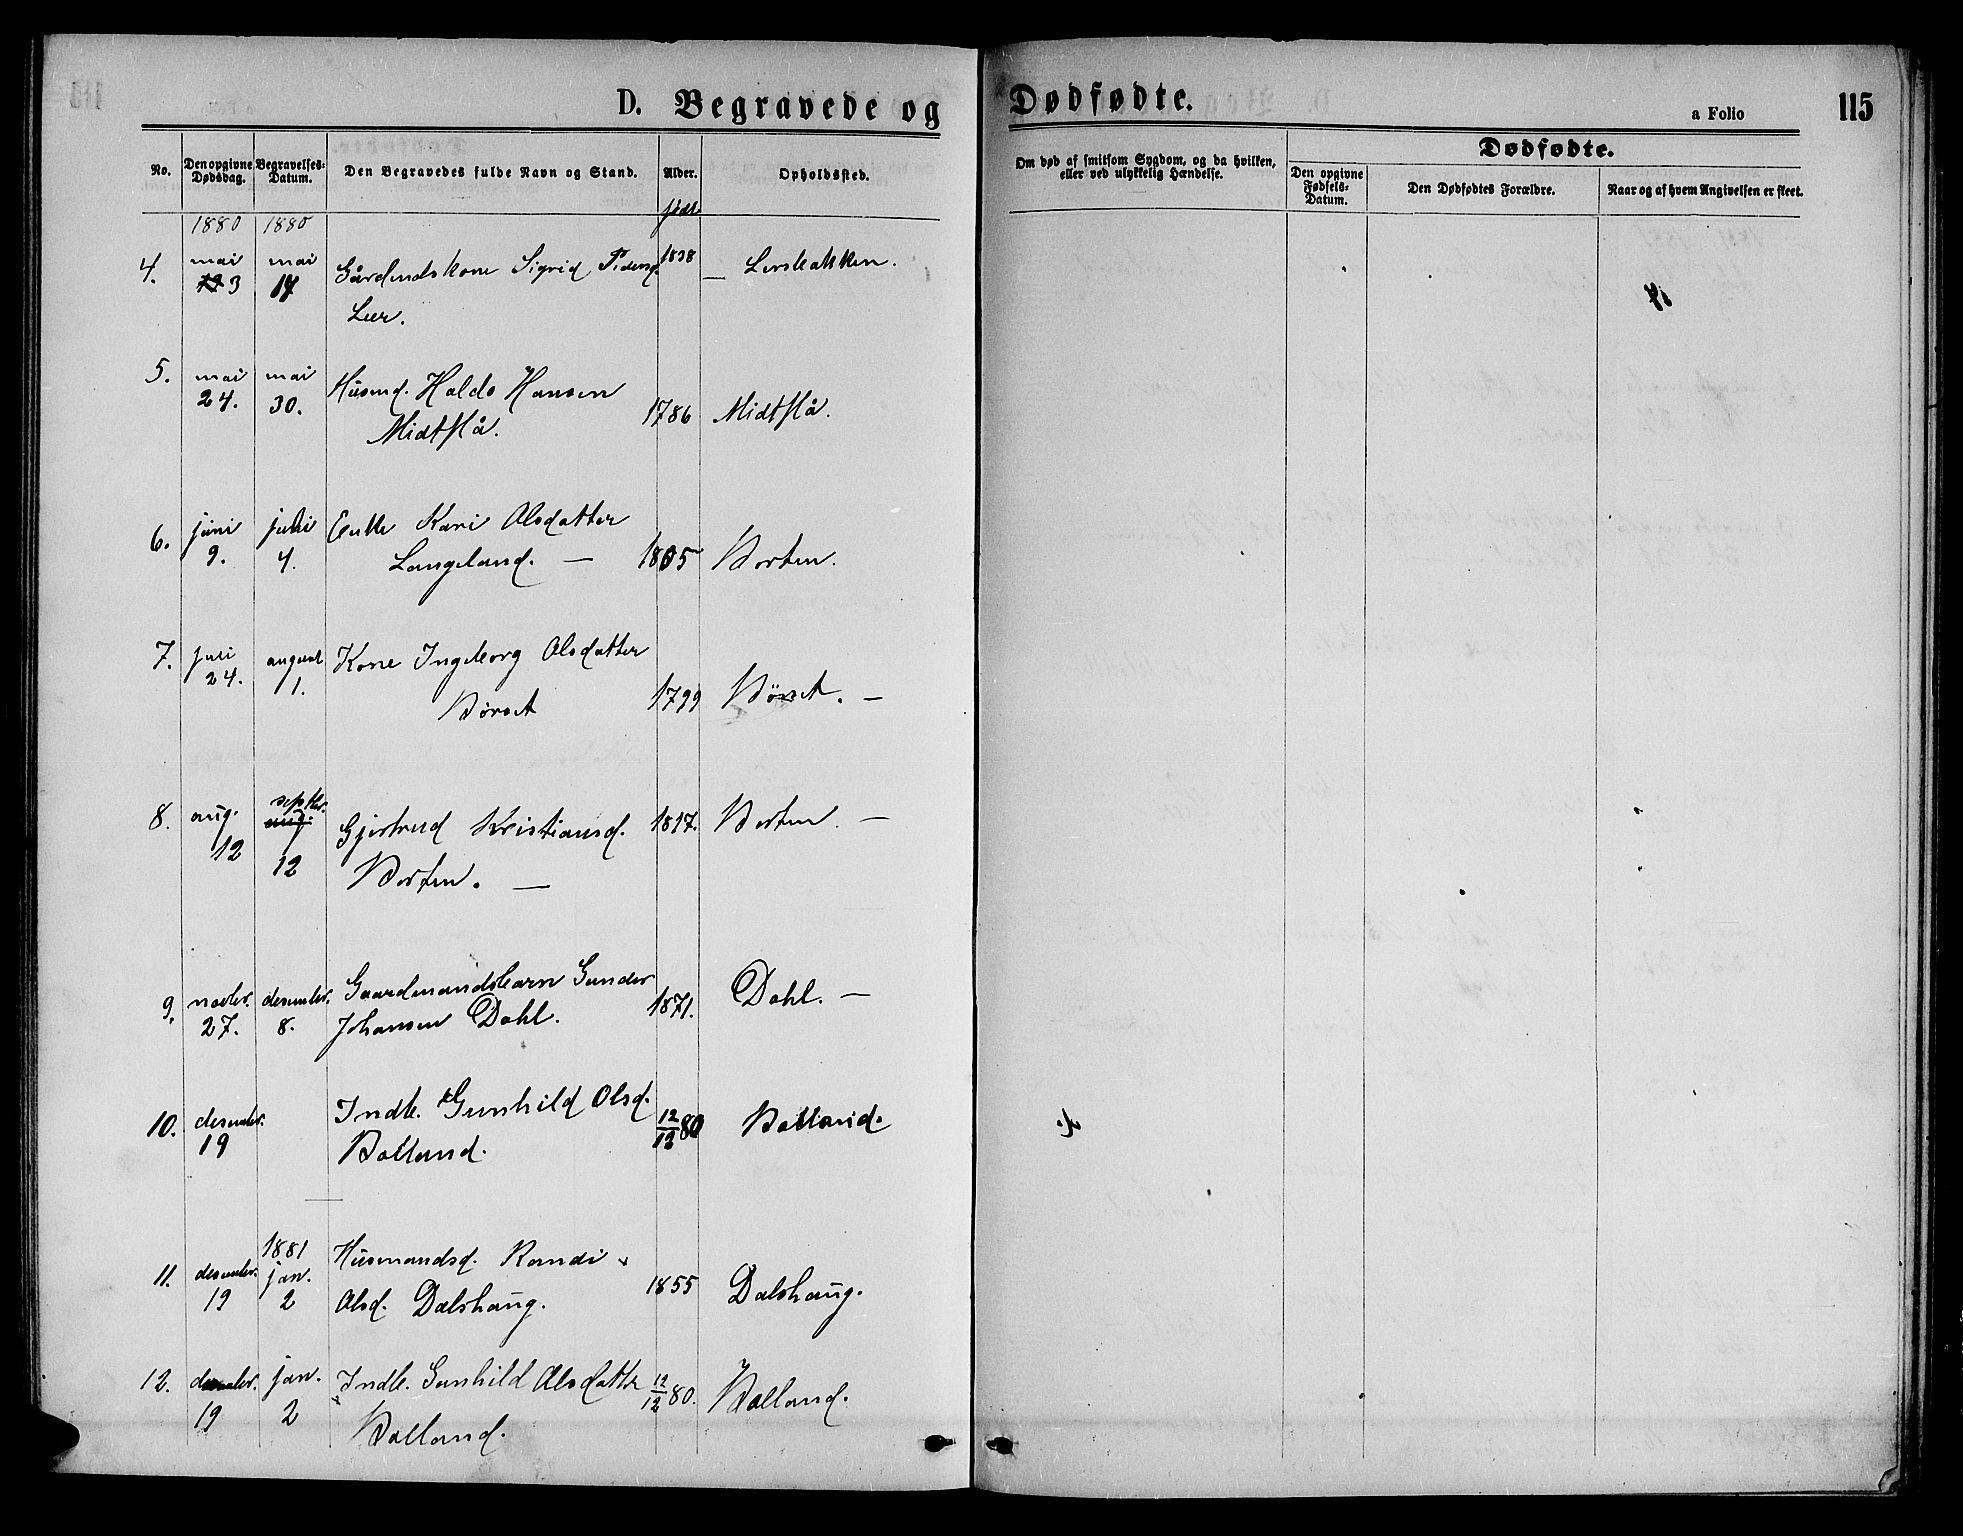 D. Begravede og Dødfødte. a Folio 115
No. Den opgivne Dødsdag. Begravelses-Datum. Den Begravedes fulde Navn og Stand. Alder. Opholdssted.
Om død af smitsom Sygdom, og da hvilken, eller ved ulykkelig Hændelse.
Dødfødte.
Den opgivne Fødsels-Datum. Den Dødfødtes Forældre. Naar og af hvem Angivelsen er skeet.
født
1880 1880
4. mai mai Gårdmdskone Sigrid Pedersd. 1838 —
3 17 Leer.
5. mai mai Husmd. Haldo Hansen
24. 30. Midtflå. 1786 Midtflå.
6. juni juli Enke Kari Olsdatter
9. 4. Langeland. — 1805 Borten.
7. juli august Kone Ingeborg Olsdatter
24. 1. Børset 1799 Børset. —
8. aug. septbr. Gjertrud Kristiansd. 1817. Borten. —
12 12 Borten. —
9. novbr. desember. Gaardmandsbarn Gunder 1871. Dahl. —
27. 8. Johansen Dahl.
10. desember. Indk. Gunhild Olsd. 12/12 80 Bolland.
19 Bolland.
1881
11. desember. jan. Husmandsd. Randi 1855 Dalshaug.
19 2 Olsd. Dalshaug.
12. jan. Indk. Gunhild Olsdatter 12/12 80. Bolland.
19 2 Bolland.